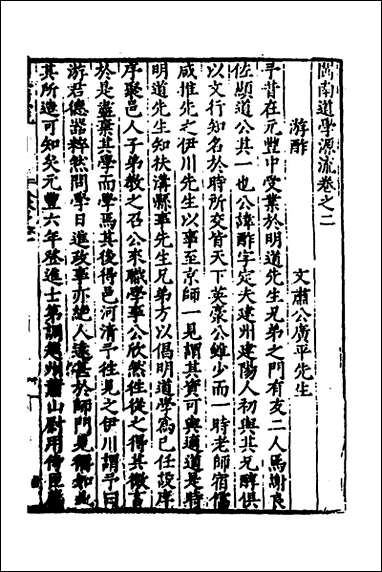 閩南道學源流卷之二
游酢　　文肅公廣平先生
予昔在元豐中受業於明道先生兄弟之門有友二人焉謝良
佐顯道公其一也公諱酢字定夫建州建陽人初與其兄醇俱
以文行知名於時所交皆天下英豪公雖少而一時老師宿儒
咸推先之伊川先生以事至京師一見謂其資可與適道是時
明道先生知扶溝縣事先生兄弟方以倡明道學為己任設庠
序聚邑人子弟教之召公來職學事公欣然往從之得其微言
於是盡棄其學而學焉其後得邑河清予往見之伊川謂予曰
游君德器粹然問學日進政事亦絕人遠甚於師門見稱如此
其所造可知矣元豐六年登進士第調越州蕭山尉用侍臣薦